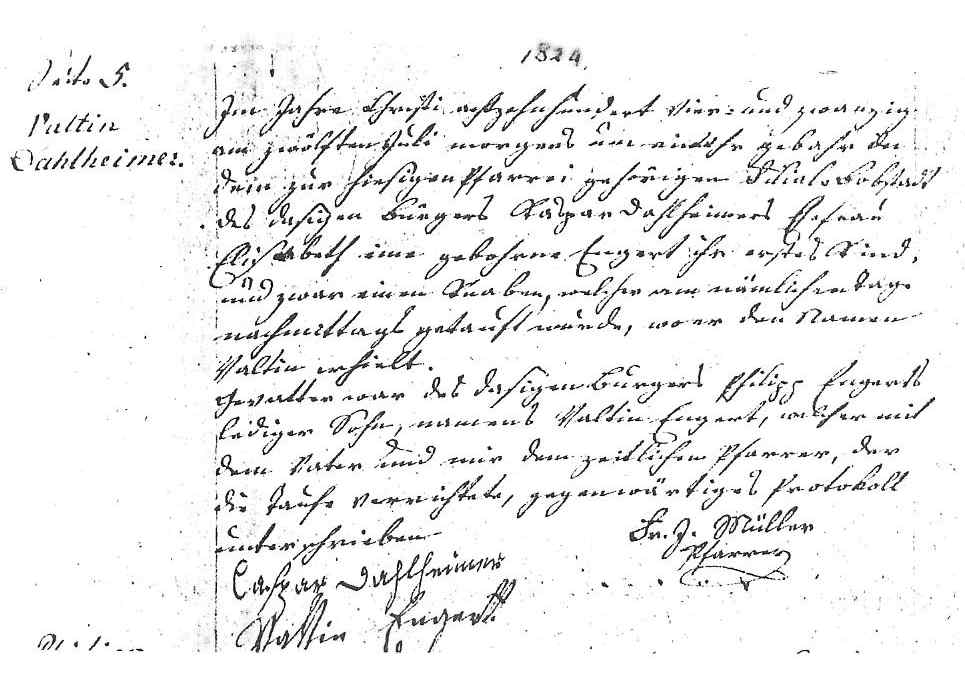 1824.
Seite 5.
Valtin
Dahlheimer.
Im Jahre Christi achtzehnhundert vier- und zwanzig
am zwölften Juli morgens um ein Uhr gebahr
dem zur hiesigen Pfarrei gehörigen Filiale Bobstadt
des dasigen Bürgers Kaspar Dahlheimers Ehefrau
Elisabeth eine gebohrne Engert ihr erstes Kind,
und zwar einen Knaben, welcher am nämlichen Tage
nachmittags getauft wurde, wo er den Namen
Valtin erhielt.
Gevatter war des dasigen Bürgers Philipp Engerts
lediger Sohn, namens Valtin Engert, welcher mit
dem Vater und mir dem zeitlichen Pfarrer, der
die Taufe verrichtete, gegenwärtiges Protokoll
unterschrieben
Fr. J. Müller
Pfarrer
Caspar Dahlheimer
Valtin Engert